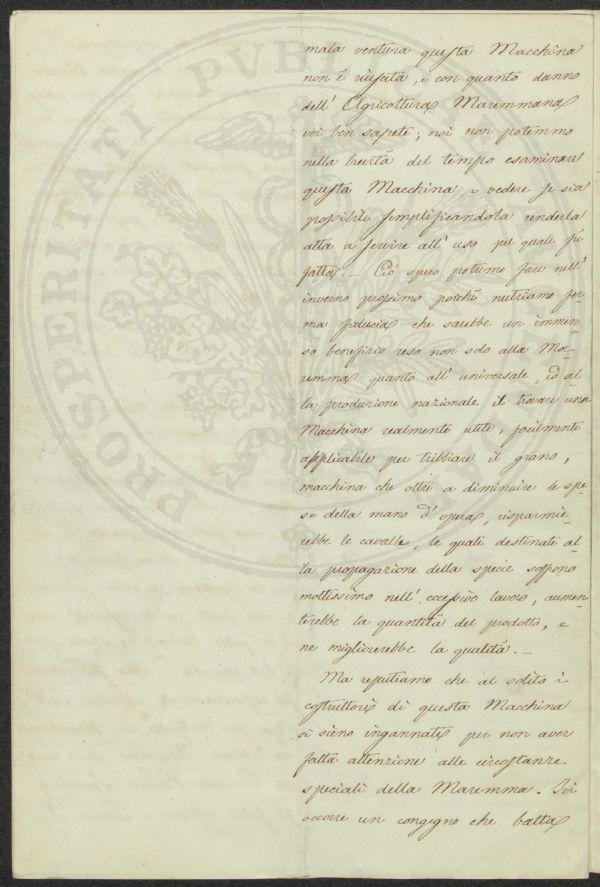 mala ventura questa Macchina
non è riuscita, e con quanto danno
dell' Agricoltura Maremmana
voi ben sapete; noi non potemmo
nella brevità del tempo esaminare
questa Macchina, e vedere se sia
possibile semplificandola renderla
atta a servire all' uso pel quale fù
fatta. — Ciò spero potremo fare nell'
inverno prossimo perchè nutriamo fer-
ma fiducia che sarebbe un immen-
so benefizio reso non solo alla Ma-
remma quanto all' universale, ed al
la produzione nazionale il trovare una
Macchina realmente utile, facilmente
applicabile per tribbiare il grano,
macchina che oltre a diminuire le spe-
se della mano d' opera, risparmie-
rebbe le cavalle, le quali destinate al-
la propagazione della specie soffrono
moltissimo nell' eccessivo lavoro, aumen-
terebbe la quantità del prodotto, e
ne migliorerebbe la qualità. —
Ma reputiamo che al solito i
costruttori di questa Macchina
si sieno ingannati per non aver
fatta attenzione alle circostanze
speciali della Maremma. Ivi
occorre un congegno che batta
PROSPERITATI PVBL